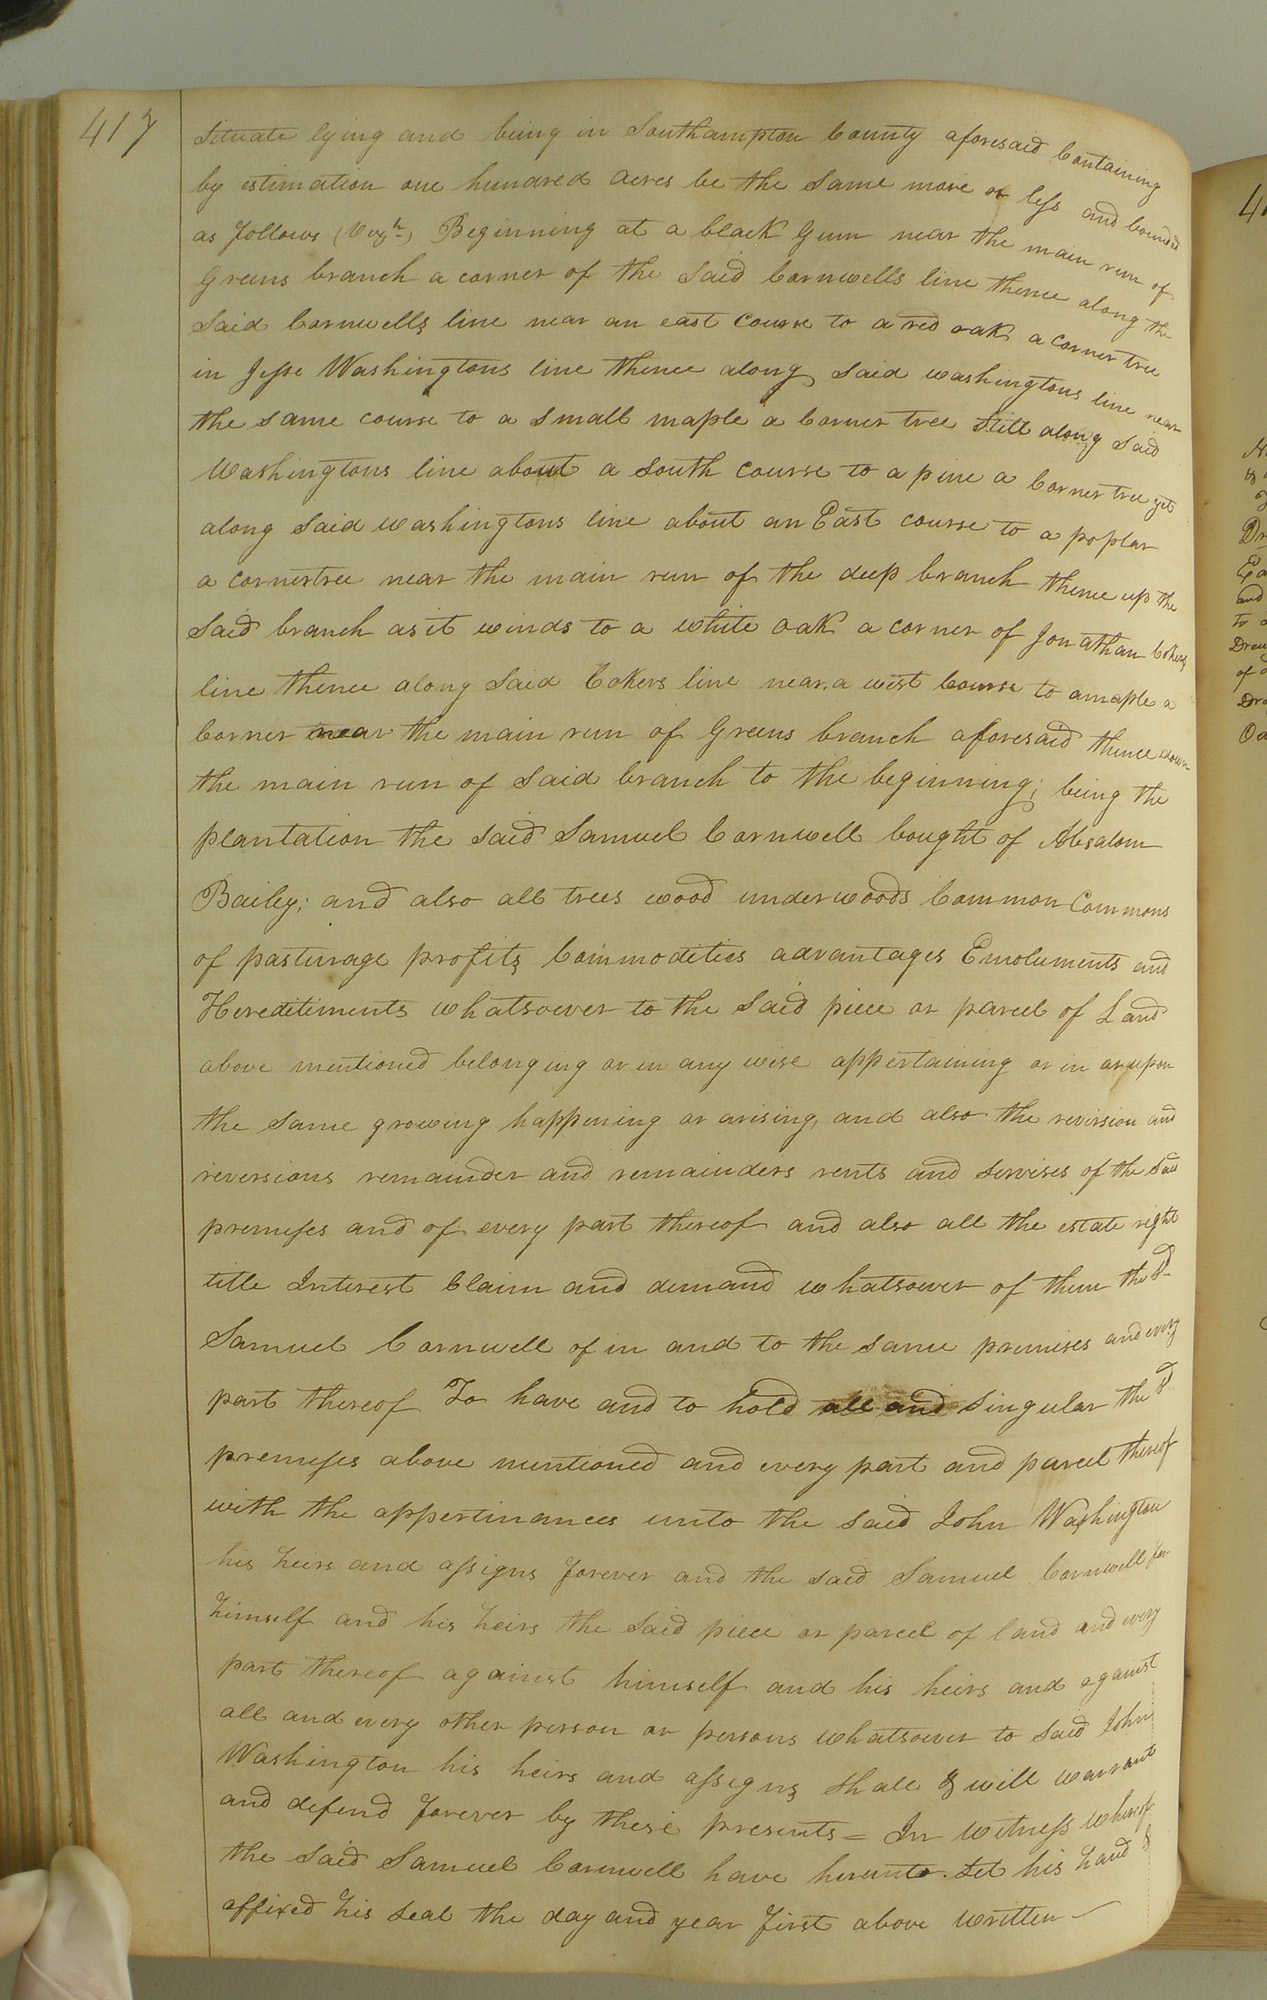 417
Situate lying and being in Southampton County aforesaid Containing
by estimation one hundred acres be the same more or less and bounded
as follows (Vizt.) Beginning at a black Gum near the main run of
Greens branch a corner of the said Cornwells line thence along the
said Cornwells line near an east course to a red oak a corner tree
in Jesse Washingtons line thence along said washingtons line near
the same course to a small maple a Corner tree Still along said
Washingtons line about a south course to a pine a Corner tree yet
along said washingtons line about an East course to a poplar
a cornertree near the main run of the deep branch thence up the
said branch as it winds to a white oak a corner of Jonathan Cokers
line thence along said Cokers line near a west Course to a maple a
Corner near the main run of Greens branch aforesaid thence down
the main run of said branch to the beginning; being the
plantation the said Samuel Cornwell bought of Absalom
Bailey; and also all trees wood underwoods Common Commons
of pasturage profits Commodities advantages Emoluments and
Hereditiments whatsoever to the said piece or parcel of Land
above mentioned belonging or in any wise appertaining or in or upon
the same growing happening or arising, and also the reversion and
reversions remainder and remainders rents and servises of the said
premises and of every part thereof and also all the estate right
title Interest Claim and demand whatsoever of them the sd
Samuel Cornwell of in and to the same premises and every
part thereof To have and to hold all and singular the sd
premises above mentioned and every part and parcel thereof
with the appertinances unto the said John Washington
his heirs and assigns forever and the said Samuel Cornwell for
himself and his heirs the said piece or parcel of land and every
part thereof against himself and his heirs and against
all and every other person or persons whatsoever to said John
Washington his heirs and assigns shall & will warrant
and defend forever by these presents = In witness whereof
the said Samuel Cornwell have hereunto Set his hand &
affixed his seal the day and year first above written